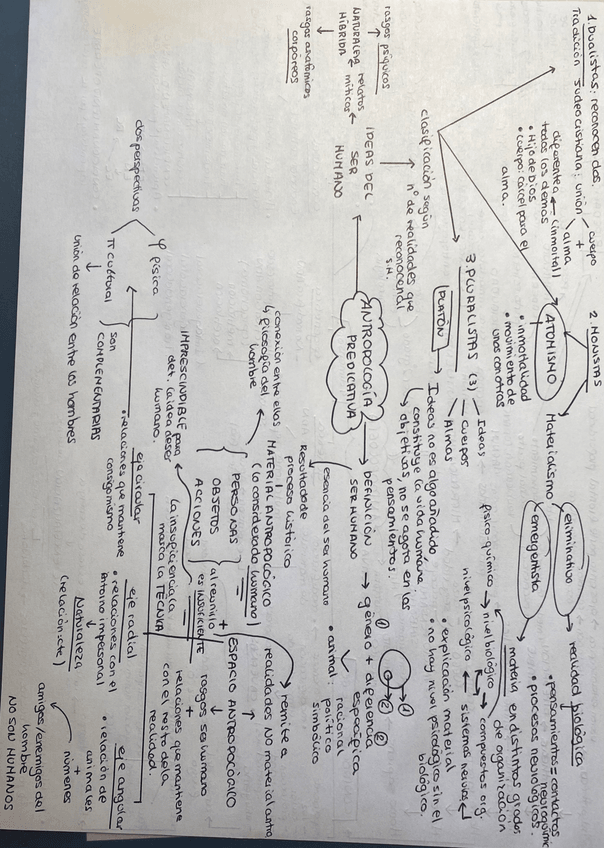 1. Dualistas: reconocen dos.
Tradición judeocristiana: unión
cuerpo
+
alma
diferente a
todos los demás
(inmortal)
• Hijo de Dios
• cuerpo: cárcel para el
alma.
2. MONISTAS
ATOMISMO
• inmortalidad
• movimiento de
unas con otras
Materialismo
eliminativo
emergentista
realidad biológica
• pensamientos = contactos
• procesos neurológicos.
materia en distintos grados
de organización
físico-químico → nivel biológico
nivel psicológico
compuestos org.
sistema
• explicación material
• no hay nivel psicológico sin el
biológico.
3. PLURALISTAS (3)
Ideas
Cuerpos
Almas
PLATÓN
Ideas no es algo añadido,
constituye la vida humana:
objetivas, no se agota en los
pensamientos.
clasificación según
nº de realidades que
reconocen al
S.H.
IDEAS DEL
SER
HUMANO
relatos
míticos
NATURALEZA
HÍBRIDA
rasgos psíquicos
rasgos anatómicos
corpóreos
ANTROPOLOGÍA
PREDICATIVA
DEFINICIÓN
SER HUMANO
género + diferencia
específica
① ②
① ②
• animal:
racional
político
simbólico
esencia del ser humano
Resultado de
proceso histórico
MATERIAL ANTROPOLÓGICO
(lo considerado humano)
conexión entre ellas
↳ filosofía del
hombre
PERSONAS
OBJETOS
ACCIONES
al reunirlo
es INSUFICIENTE
IMPRESCINDIBLE para
det. la idea de ser
humano.
La insuficiencia la
marca la TÉCNICA
remite a
realidades NO material antro
ESPACIO ANTROPOLÓGICO
rasgos ser humano
+
relaciones que mantiene
con el resto de la
realidad.
dos perspectivas
φ física
π cultural
son
COMPLEMENTARIAS
unión de relación entre los hombres
eje circular
• relaciones que mantiene
consigo mismo
eje radial
• relaciones con el
entorno impersonal
Naturaleza
eje angular
• relación de
animales
+
númenes
amigos/enemigos del
hombre
NO SON HUMANOS